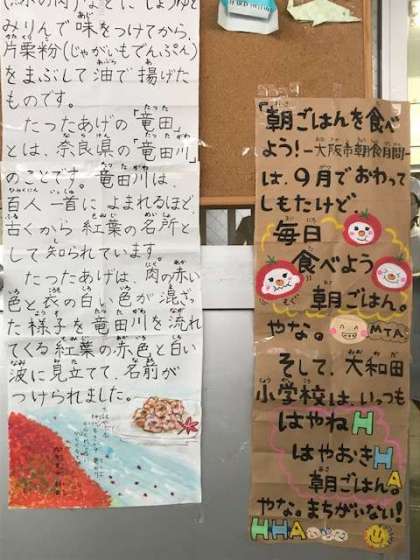 みりんで味をつけてから、
片栗粉(じゃがいもでんぷん)
をまぶして油で揚げた
ものです。
たったあげの「竜田」
とは、奈良県の「竜田川」
のことです。竜田川は、
百人一首によまれるほど
古くから紅葉の名所と
して知られています。
たつたあげは、肉の赤い
色と衣の白い色が混ざっ
た様子を竜田川を流れ
てくる紅葉の赤色と白い
波に見立てて、名前が
つけられました。
「朝ごはんを食べ
よう!―大阪市朝食月間―
は、9月でおわって
しもたけど、
毎日
食べよう
朝ごはん。
やな。
MTA
そして、大和田
小学校は、いつも
はやねH
はやおきH
朝ごはん。A
やな。まちがいない!
HHA